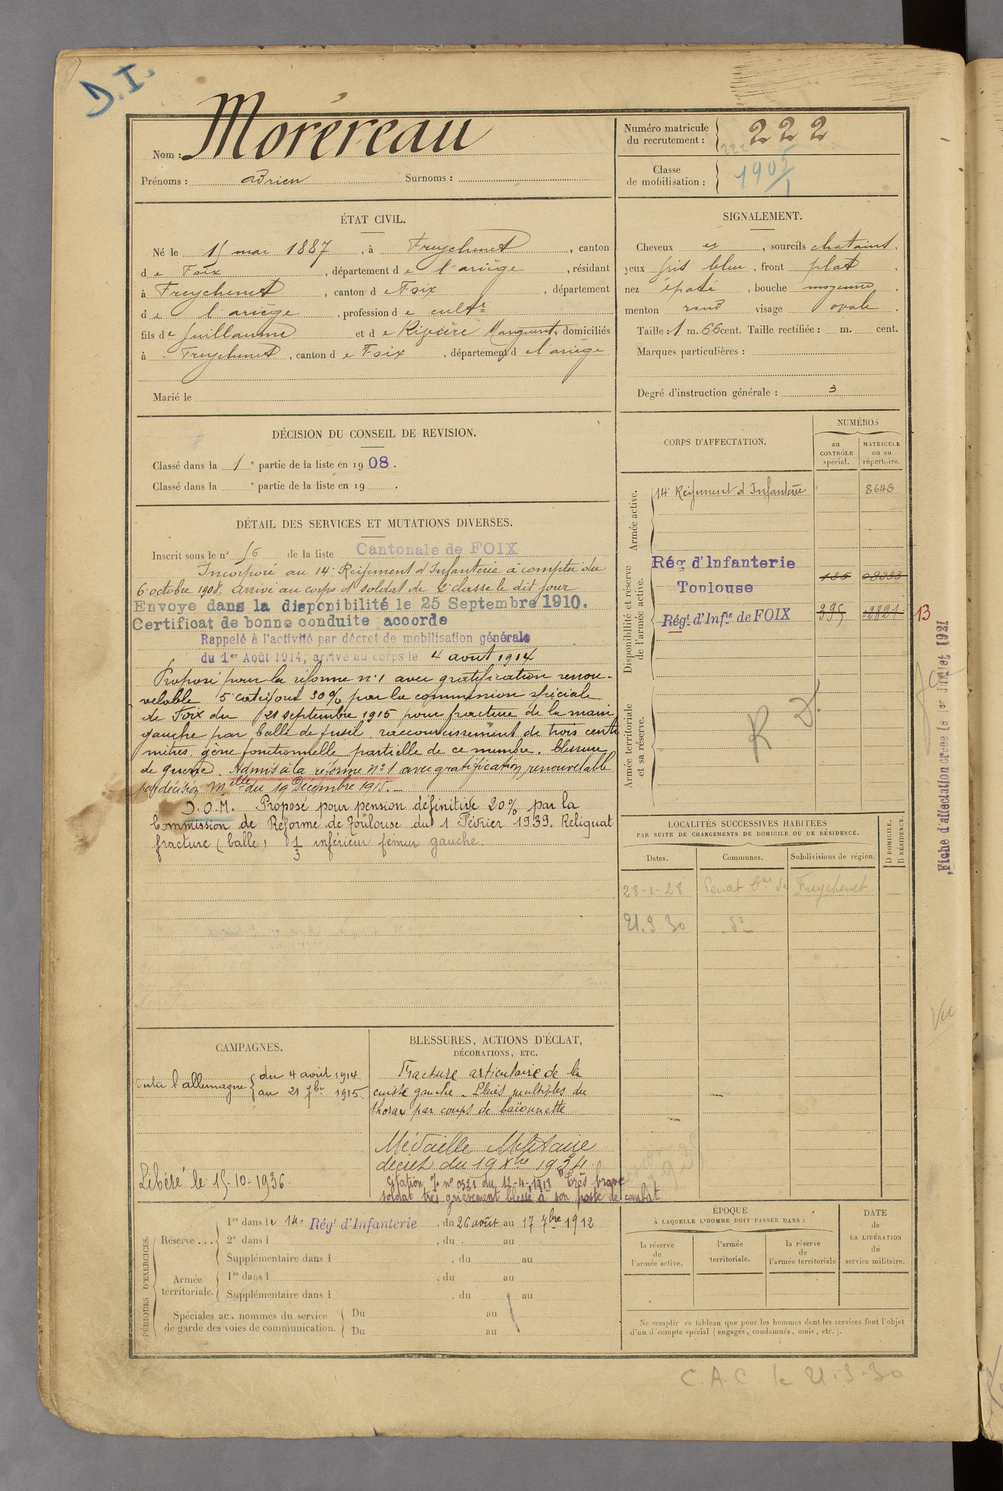 D.I.
Nom : Moréreau
Prénoms : Adrien Surnoms :
Numéro matricule du recrutement : 222
Classe de mobilisation : 190
ÉTAT CIVIL.
Né le 15 mai 1887, à Freychenet, canton
de Foix, département de l'ariège, résidant
à Freychenet, canton de Foix, département
de l'ariège, profession de cultr
fils de Guillaume et de Marguerite domiciliés
à Freychenet, canton de Foix, département de l'ariège
Marié le
SIGNALEMENT.
Cheveux et, sourcils chatains,
yeux gris bleu, front plat
nez épaté, bouche moyenne
menton rond visage ovale
Taille : 1 m. 66 cent. Taille rectifiée : m. cent.
Marques particulières :
Degré d'instruction générale : 3
DÉCISION DU CONSEIL DE REVISION.
Classé dans la 1e partie de la liste en 1908.
Classé dans la e partie de la liste en 19 .
DÉTAIL DES SERVICES ET MUTATIONS DIVERSES.
Inscrit sous le n° 56 de la liste Cantonale de FOIX
Incorporé au 14e Régiment d'Infanterie à compter du
6 octobre 1908. Arrivé au corps et soldat de 2e classe le dit jour
Envoye dans la disponibilité le 25 Septembre 1910.
Certificat de bonne conduite accorde
Rappelé à l'activité par décret de mobilisation générale
du 1er Août 1914, arrivé au corps le 4 aout 1914
Proposé pour la réforme n°1 avec gratification renou-
velable 5 catégorie 30% par la commission spéciale
de Foix du 21 septembre 1915 pour fracture de la main
gauche par balle de fusil, raccourcissement de trois centi
mètres, gêne fonctionnelle partielle de ce membre. blessure
de guerre. Admis à la réforme n°1 avec gratification renouvelable
par décision Mlle du 19 Décembre 1915.
D.O.M. Proposé pour pension définitive 20% par la
Commission de Réforme de Toulouse du 1 Février 1939. Reliquat
fracture (balle) 1/3 inférieur fémur gauche.
CORPS D'AFFECTATION.
NUMÉROS
au CONTRÔLE spécial.
MATRICULE ou au répertoire.
Armée active.
14e Régiment d'Infanterie 8648
Disponibilité et réserve de l'armée active.
Rég. d'Infanterie
Toulouse 135
Rég. d'Infie de FOIX 13
Armée territoriale et sa réserve.
R D.
Fiche d'affectation créée le 1er Juillet 1927
LOCALITÉS SUCCESSIVES HABITÉES
PAR SUITE DE CHANGEMENTS DE DOMICILE OU DE RÉSIDENCE.
Dates. Communes. Subdivisions de région. D DOMICILE. R RÉSIDENCE.
28-1-28 Freychenet
21.3.30 do
Vu
CAMPAGNES.
Contre l'allemagne du 4 août 1914
au 21 7bre 1915
Libéré le 15-10-1936
BLESSURES, ACTIONS D'ÉCLAT,
DÉCORATIONS, ETC.
Fracture articulaire de la
cuisse gauche. Plaies multiples du
thorax par coups de baïonnette
Médaille Militaire
décret du 19 Xbre 1934
Citation "Très brave
soldat très grièvement blessé à son poste de combat
PÉRIODES D'EXERCICES.
Réserve ... 1re dans le 14e Rég. d'Infanterie, du 26 août au 17 7bre 1912
2e dans l , du au
Supplémentaire dans l , du au
Armée territoriale. 1re dans l , du au
Supplémentaire dans l , du au
Spéciales aux hommes du service de garde des voies de communication. Du au
Du au
ÉPOQUE
À LAQUELLE L'HOMME DOIT PASSER DANS :
la réserve de l'armée active.
l'armée territoriale.
la réserve de l'armée territoriale
DATE de LA LIBÉRATION du service militaire.
Ne remplir ce tableau que pour les hommes dont les services font l'objet
d'un décompte spécial (engagés, condamnés, omis, etc.).
C.A.C le 21-3-30